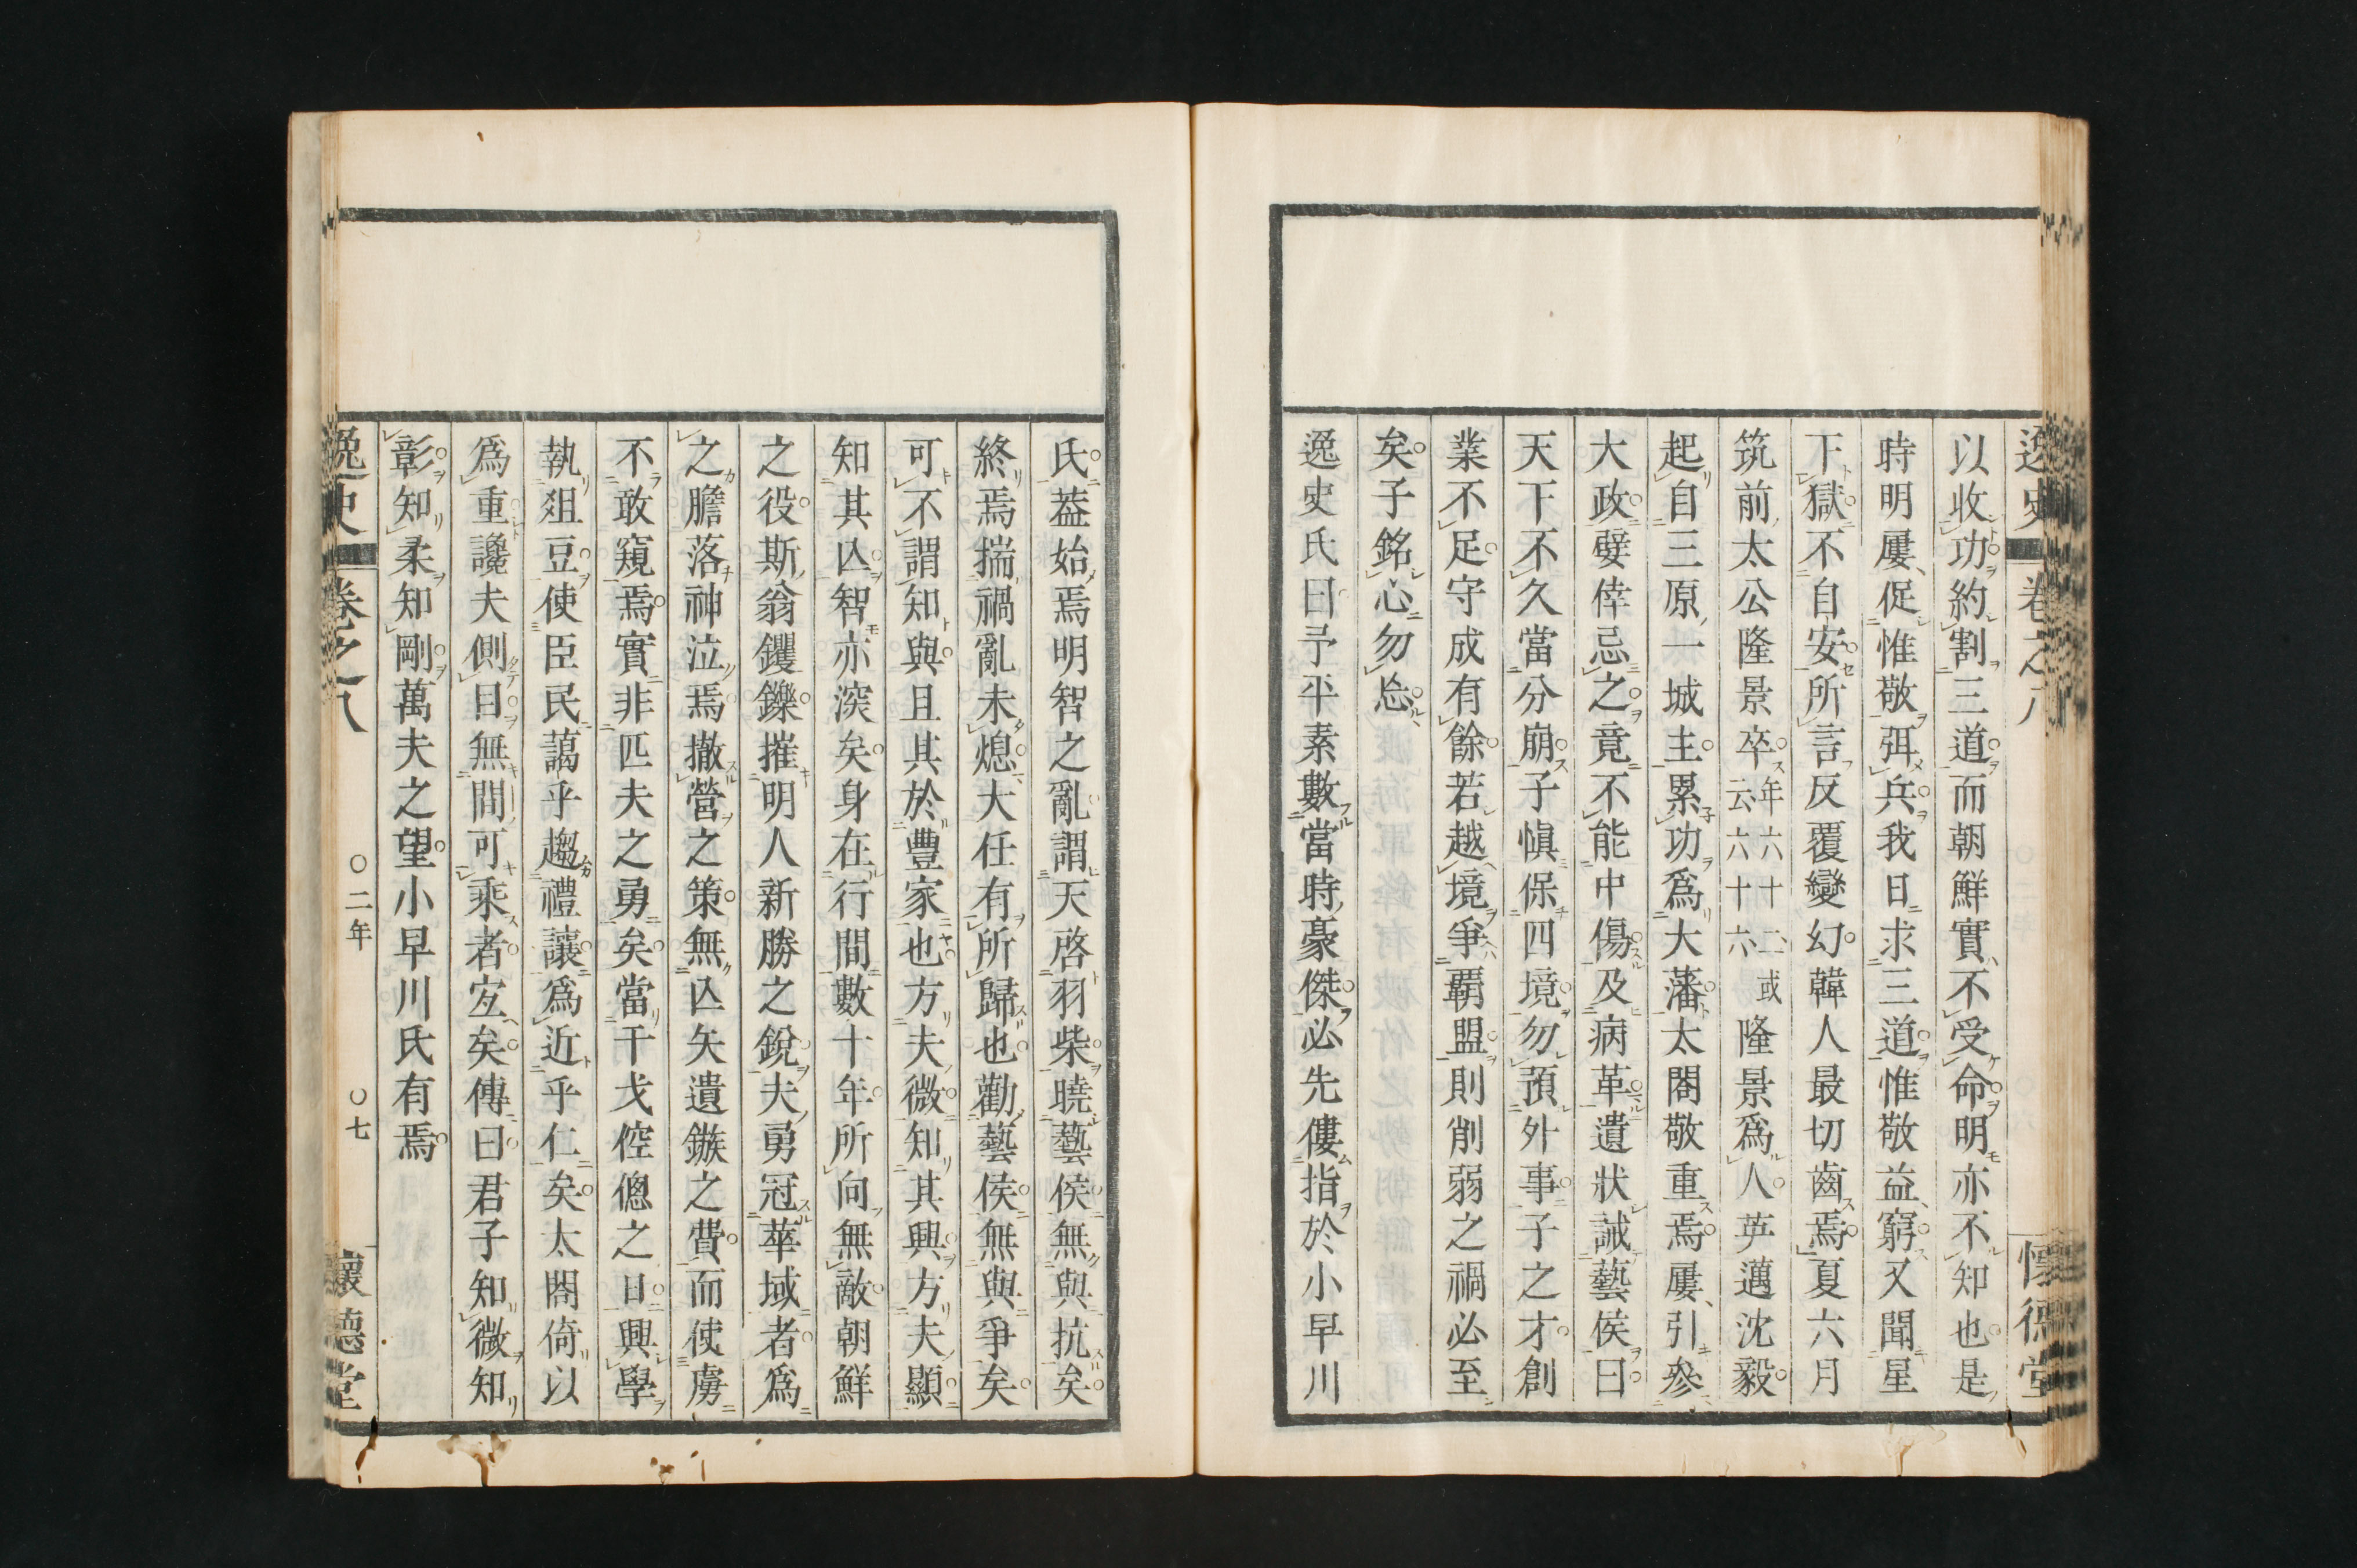 逸史 卷之八 懷德堂
以收功約割三道而朝鮮實不受命明亦不知也是
時明屢促惟敬弭兵我日求三道惟敬益窮又聞星
下獄不自安所言反覆變幻韓人最切齒焉夏六月
筑前太公隆景卒年六十二或云六十六隆景爲人英邁沈毅
起自三原一城主累功爲大藩太閤敬重焉屢引參
大政嬖倖忌之竟不能中傷及病革遺狀誡藝侯曰
天下不久當分崩子愼保四境勿預外事子之才創
業不足守成有餘若越境爭覇盟則削弱之禍必至
矣子銘心勿忘
逸史氏曰予平素數當時豪傑必先僂指於小早川
氏葢始焉明智之亂謂天啓羽柴曉藝侯無與抗矣
終焉揣禍亂未熄大任有所歸也勸藝侯無與爭矣
可不謂知與且其於豐家也方夫微知其興方夫顯
知其亾智亦深矣身在行間數十年所向無敵朝鮮
之役斯翁钁鑠摧明人新勝之銳夫勇冠華域者爲
之膽落神泣焉撤營之策無亾矢遺鏃之費而使虜
不敢窺焉實非匹夫之勇矣當干戈倥傯之日興學
執俎豆使臣民藹乎趨禮讓爲近乎仁矣太閤倚以
爲重讒夫側目無間可乘者宐矣傳曰君子知微知
彰知柔知剛萬夫之望小早川氏有焉
逸史 卷之八 〇二年 〇七 懷德堂